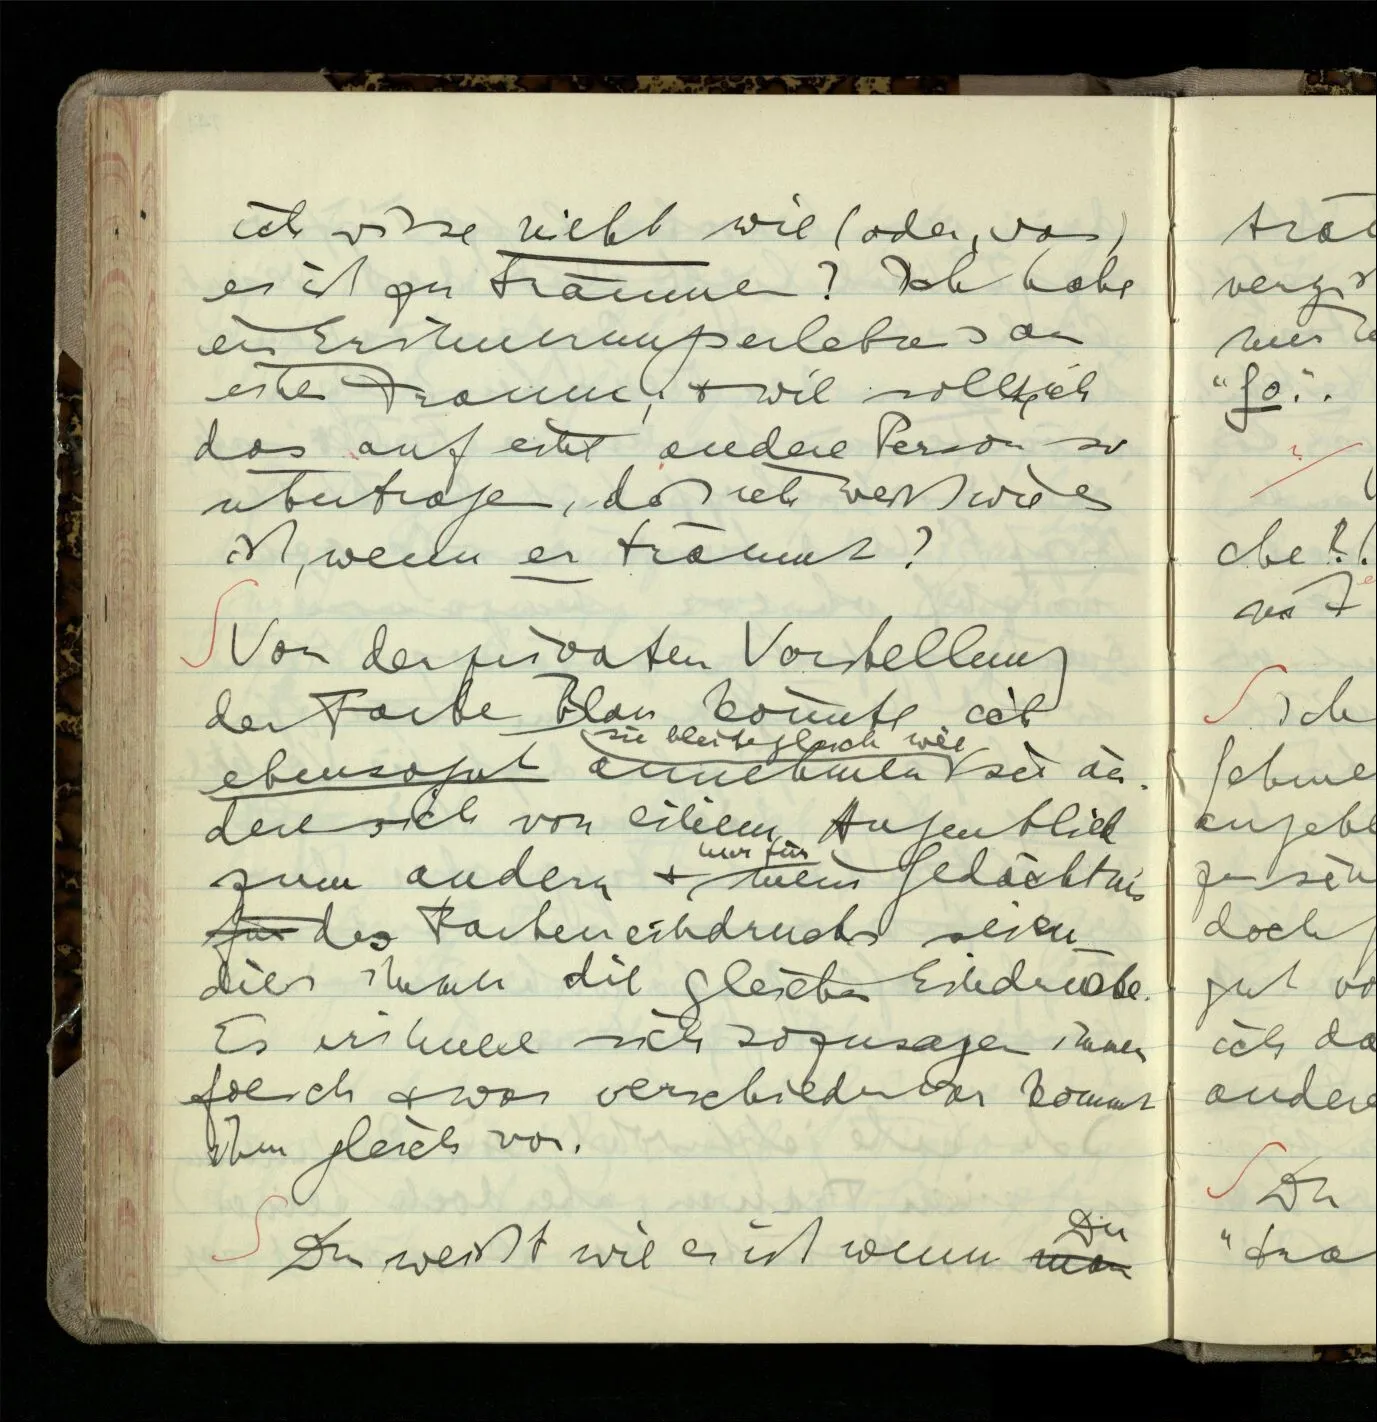 ich wisse nicht wie (oder, was)
es ist zu träumen? Ich habe
ein Erinnerungserlebnis an
einen Traum, & wie soll ich
das auf eine andere Person so
übertragen, daß ich weiß wie es
ist, wenn er träumt?
∫ Von der privaten Vorstellung
der Farbe Blau könnte ich
sie bleibe gleich wie
ebensogut annehmen sie än-
dere sich von einem Augenblick
nur für
zum andern & mein Gedächtnis
für des Farbeneindrucks seien
dies immer die gleichen Eindrücke.
Es erinnere sich sozusagen immer
falsch & was verschieden war kommt
ihm gleich vor.
Du
∫ Du weißt wie es ist wenn man
träu
vergiß
nur
"So".
che?!
∫ Ich
gebe
zu sein
doch
gut vo
ich da
andere
∫ Du
"trä